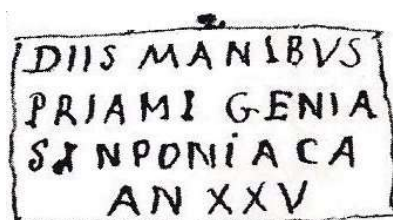 2.
DIIS MANIBVS
PRIAMI GENIA
SINPONIACA
AN XXV